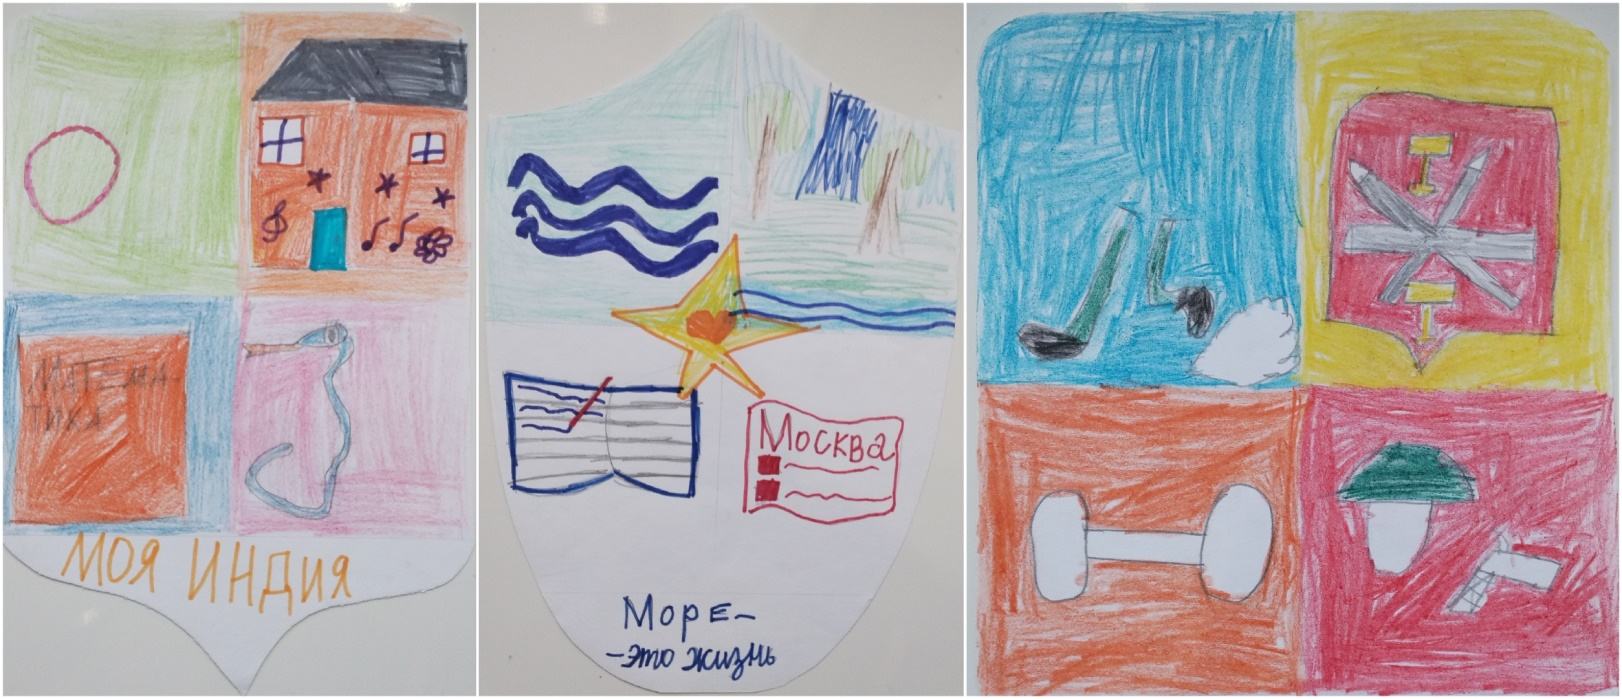 МАТЕМА
ТИКА
МОЯ ИНДИЯ
Москва
Море-
-это жизнь